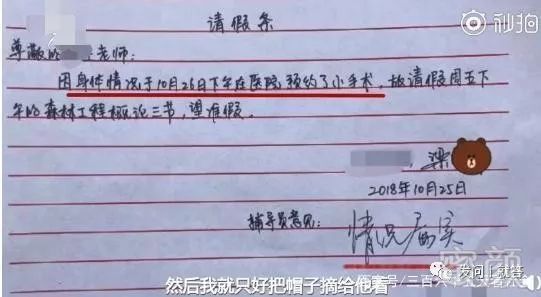 请假条
秒拍
尊敬的 老师:
因身体情况于10月26日下午在医院预约了小手术,故请假周五下
午的森林工程概论三节,望准假。
梁
2018年10月25日
辅导员意见:
情况属实
然后我就只好把帽子摘给他看
发问上就答